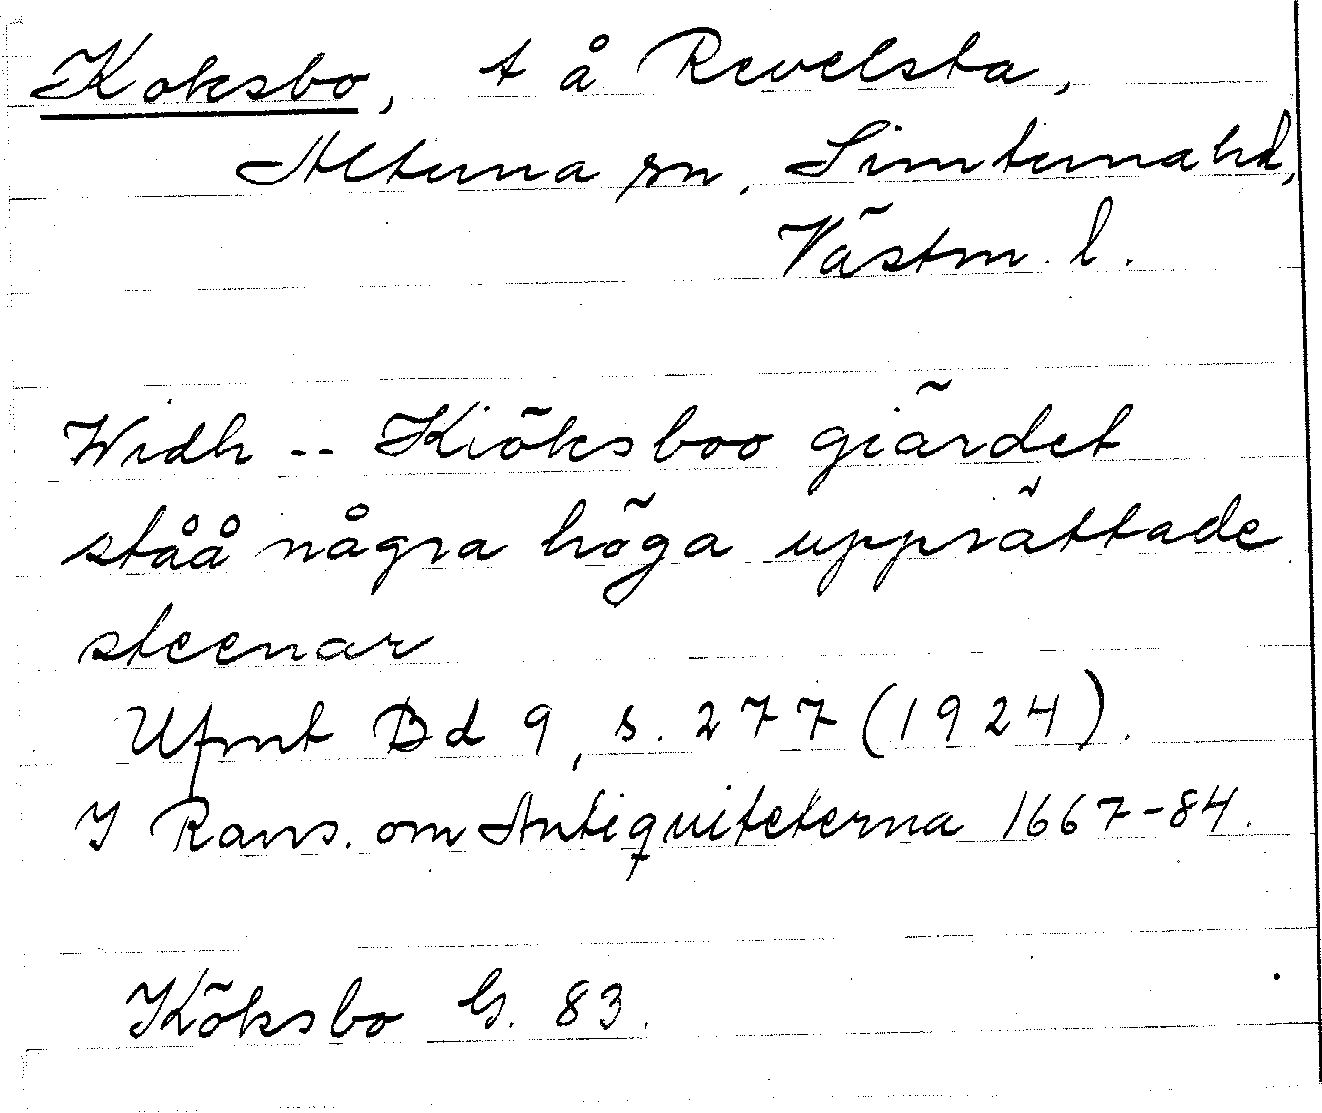 Koksbo, t å Revelsta,
Altuna sn, Simtuna hd,
Västm. l.
Widh -- Kiöksboo giärdet
ståå några höga upprättade
steenar
Ufmt Bd 9, s. 277 (1924).
I Rans. om Antiquiteterna 1667-84.
Köksbo G. 83.